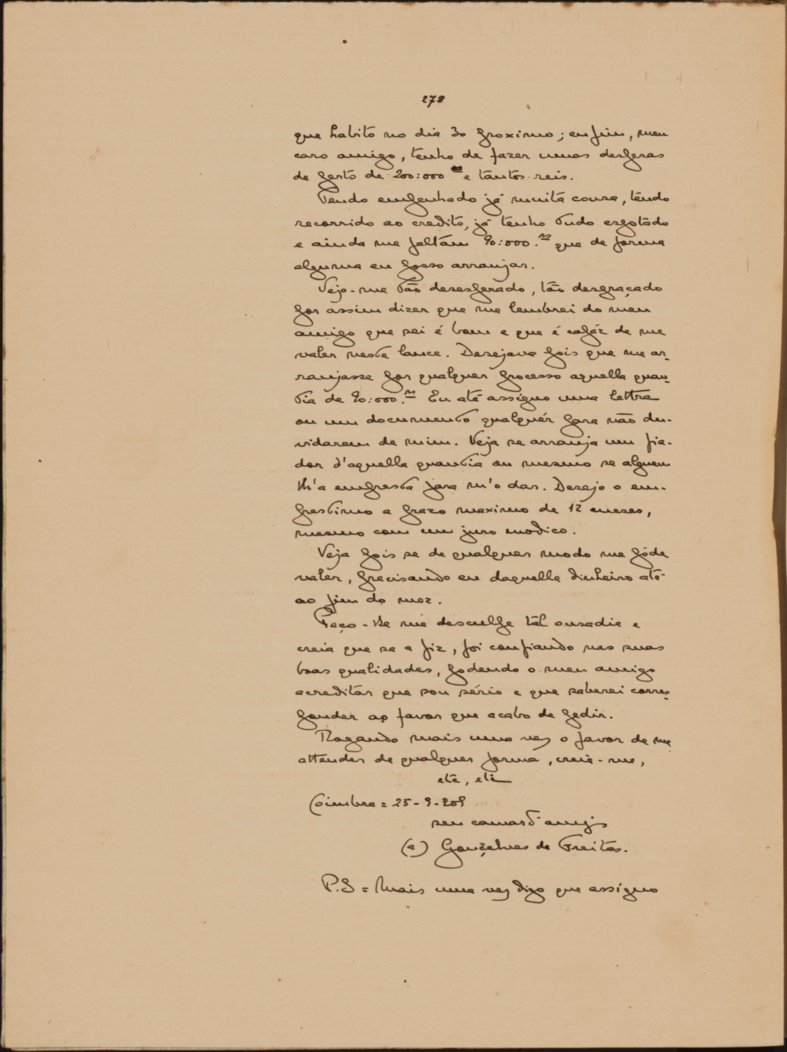 278
que habito no dia 30 proximo; enfim, meu
caro amigo, tenho de fazer umas despezas
de perto de 200:000 rs e tantos reis.
Tendo empenhado já muita cousa, tendo
recorrido ao credito, já tenho tudo esgotado
e ainda me faltam 90:000.rs que de forma
alguma eu posso arranjar.
Vejo-me tão desesperado, tão desgraçado
por assim dizer que me lembrei do meu
amigo que sei é bom e que é capáz de me
valer nesta lance. Desejava pois que me ar-
ranjasse por qualquer processo aquella quan-
tia de 90:000.rs Eu até assigno uma lettra
ou um documento qualquér para não du-
vidarem de mim. Veja se arranja um fia-
dor d'aquella quantia ou mesmo se alguem
lh'a empresta para m'o dar. Desejo o em-
prestimo a prazo maximo de 12 mezes,
mesmo com um juro modico.
Veja pois se de qualquer modo me póde
valer, precisando eu daquelle dinheiro até
ao fim do mez.
Peço-lhe me desculpe tál ousadia e
creia que se a fiz, foi confiando nas suas
boas qualidades, podendo o meu amigo
acreditar que sou sério e que saberei corres-
ponder ao favor que acabo de pedir.
Rogando mais uma vez o favor de me
attender de qualquer forma, creia-me,
etc, etc
Coimbra = 25-9-909
seu camarda amigo
(a) Gonçalves de Freitas.
P.S = Mais uma vez digo que assigno